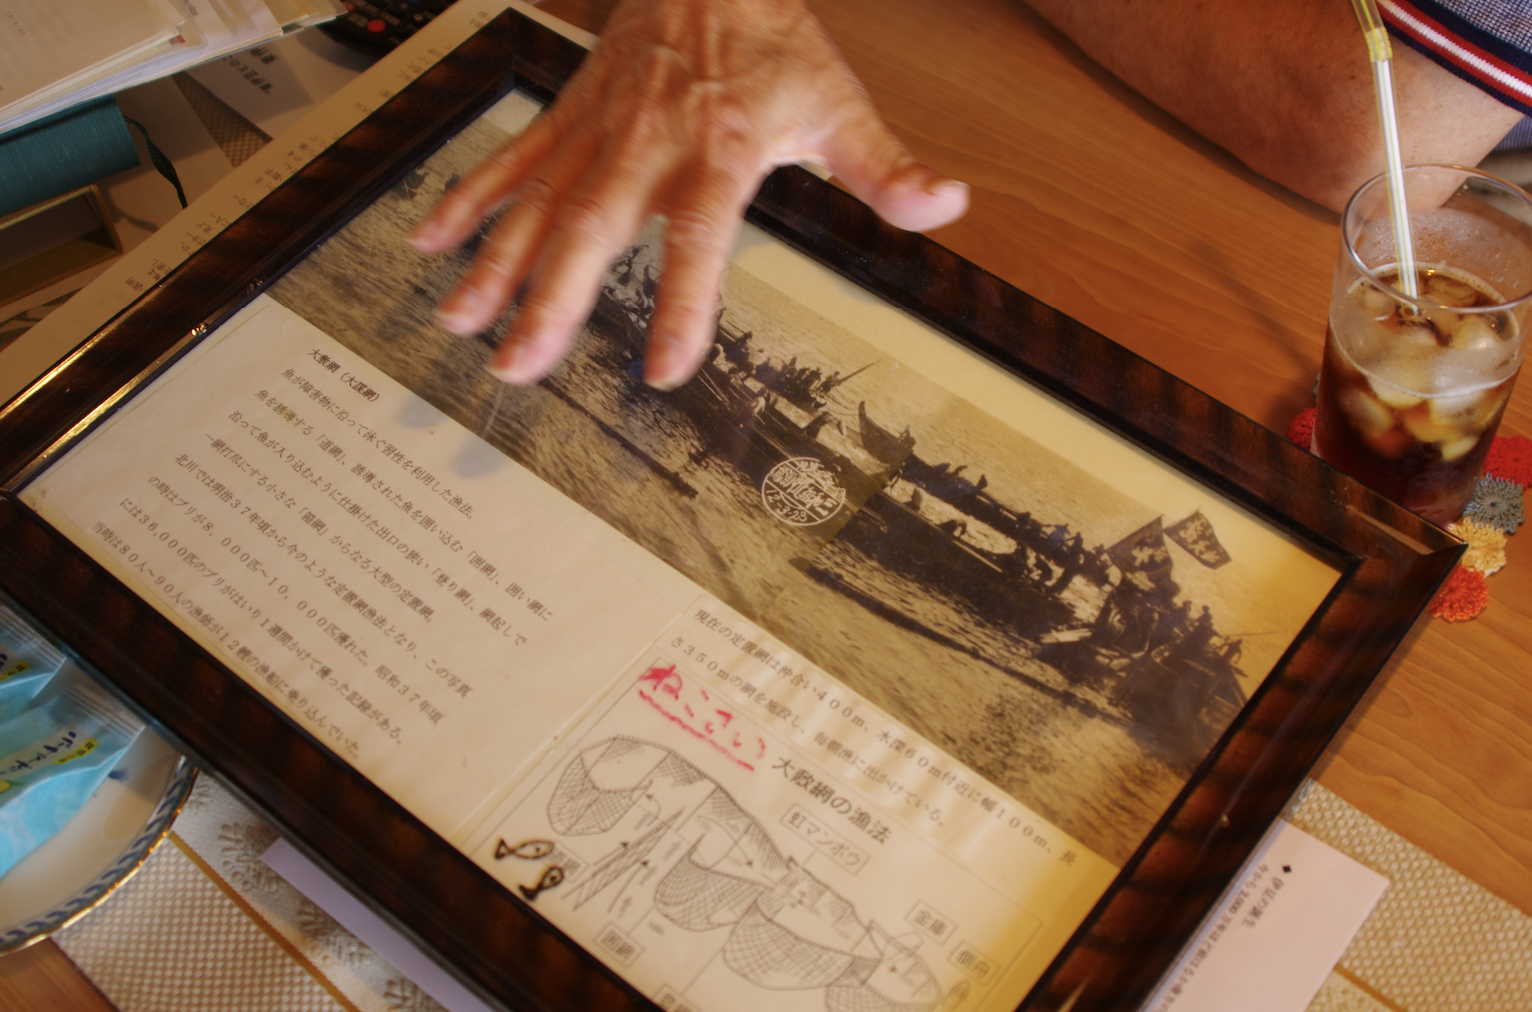 大敷網（大謀網）
魚が障害物に沿って泳ぐ習性を利用した漁法。
魚を誘導する「道網」、誘導された魚を囲い込む「囲網」、囲い網に
沿って魚が入り込むように仕掛けた出口の狭い「登り網」、網起しで
一網打尽にする小さな「箱網」からなる大型の定置網。
北川では明治３７年頃から今のような定置網漁法となり、この写真
の時はブリが８，０００匹～１０，０００匹獲れた。昭和３７年頃
には３６，０００匹のブリがはいり１週間かけて獲った記録がある。
当時は８０人～９０人の漁師が１２艘の漁船に乗り込んでいた。
現在の定置網は沖合い４００ｍ、水深６０ｍ付近に幅１００ｍ、長
さ３５０ｍの網を施設し、毎朝漁に出かけている。
ねこさい
大敷網の漁法
虹マンボウ
金庫
個舟
囲網
12.3.25
◆ 伊豆の誕生